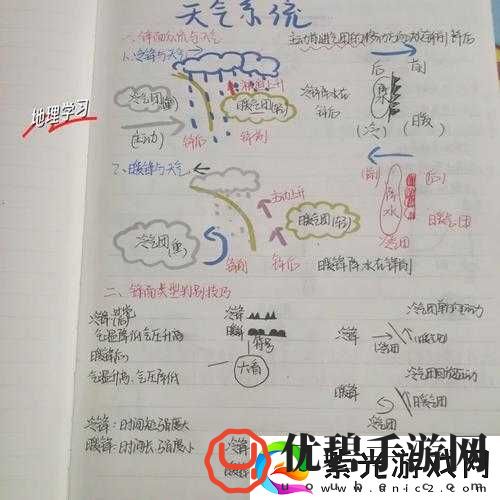 天气系统
一、锋面系统与天气
1、冷锋与天气
冷气团(重)
(主动)
被迫上升
暖气团(轻)
锋后
锋前
冷锋降水在
锋后
后
前
降
水
(冷)
(暖)
地理学习
2、暖锋与天气
冷气团(重)
主动上升
暖气团(轻)
锋前
锋后
暖锋降水在锋前
(前)
(后)
降
水
冷气团
暖气团
二、锋面类型判别技巧
冷锋
气温降低气压升高
暖锋
气温升高、气压降低
冷锋
暖锋
符号
六看
冷锋
冷气团
暖气团
暖锋
暖气团
冷气团
冷锋:时间短,强度大
暖锋:时间长,强度小
冷锋
优程手游网
紫光游戏网
www.unic2.com